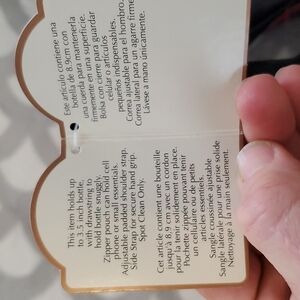 Este artículo contiene una
botella de 8.9cm con
una cuerda para mantenerla
firmemente en una superficie.
Bolsa con cierre para guardar
celular o artículos
pequeños indispensables.
Correa ajustable para el hombro.
Correa lateral para un agarre firme
Lávese a mano únicamente.
This item holds up
to 3.5 inch bottle,
with drawstring to
hold bottle snuggly.
Zipper pouch can hold cell
phone or small essentials.
Adjustable padded shoulder strap.
Side Strap for secure hand grip.
Spot Clean Only.
Cet article contient une bouteille
jusqu'à 8,9 cm avec un cordon
pour la tenir solidement en place.
Pochette zippée pouvant tenir
un cellulaire ou de petits
articles essentiels.
Sangle coussinée ajustable
Sangle latérale pour une prise solide
Nettoyage à la main seulement.